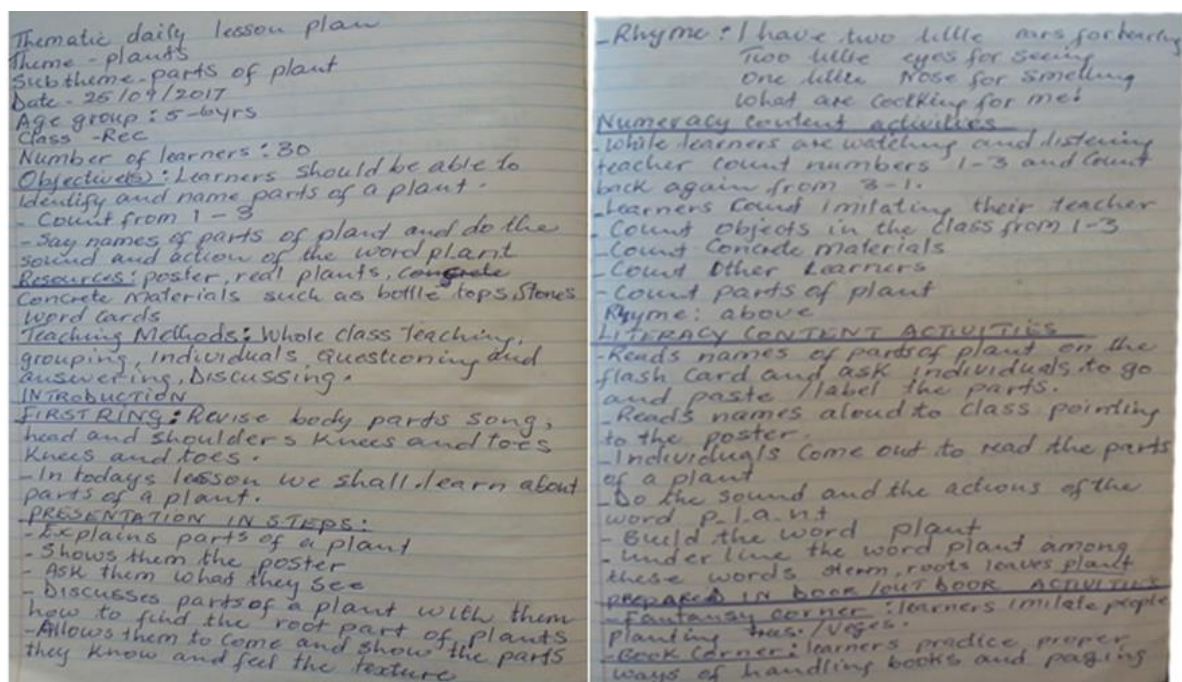 Thematic daily lesson plan
Theme - plants
Subtheme - parts of plant
Date - 25/09/2017
Age group : 5-6yrs
Class - Rec
Number of learners : 30
Objective(s) : Learners should be able to
Identify and name parts of a plant .
- Count from 1 - 3
- Say names of parts of plant and do the
sound and action of the word plant
Resources : poster, real plants,
Concrete materials such as bottle tops, Stones
word cards
Teaching Methods : Whole class teaching,
grouping, individuals questioning and
answering, Discussing .
INTRODUCTION
FIRST RING : Revise body parts song,
head and shoulders knees and toes
Knees and toes .
- In todays lesson we shall learn about
parts of a plant .
PRESENTATION IN STEPS :
- Explains parts of a plant
- Shows them the poster
- Ask them what they see
- Discusses parts of a plant with them
how to find the root part of plants
- Allows them to come and show the parts
they know and feel the texture
- Rhyme : I have two little ears for hearing
Two little eyes for seeing
One little Nose for smelling
What are cootking for me!
Numeracy content activities
- While learners are watching and listening
teacher count numbers 1-3 and count
back again from 3-1.
- Learners count imitating their teacher
- Count objects in the class from 1-3
- Count Concrete materials
- Count Other Learners
- Count parts of plant
Rhyme : above
LITERACY CONTENT ACTIVITIES
- Reads names of parts of plant on the
flash card and ask individuals to go
and paste / label the parts .
- Reads names aloud to class pointing
to the poster .
- Individuals come out to read the parts
of a plant
- Do the sound and the actions of the
word p.l.a.n.t
- Build the word plant
- Under line the word plant among
these words stem, roots leaves plant
PREPARED IN DOOR / OUT DOOR ACTIVITIES
- Fantansy corner : learners imitate people
planting trees / veges .
- Book Corner : learners pradice proper
ways of handling books and paging